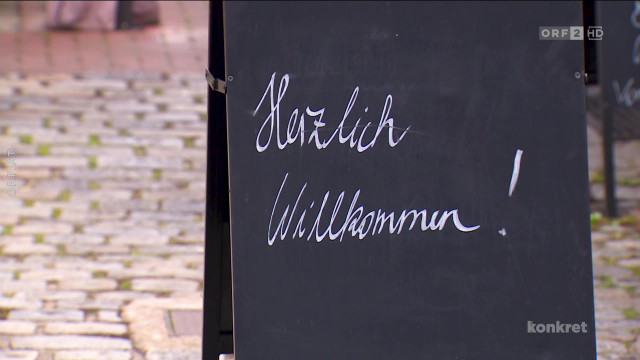 ORF 2 HD
Herzlich
Willkommen !
konkret